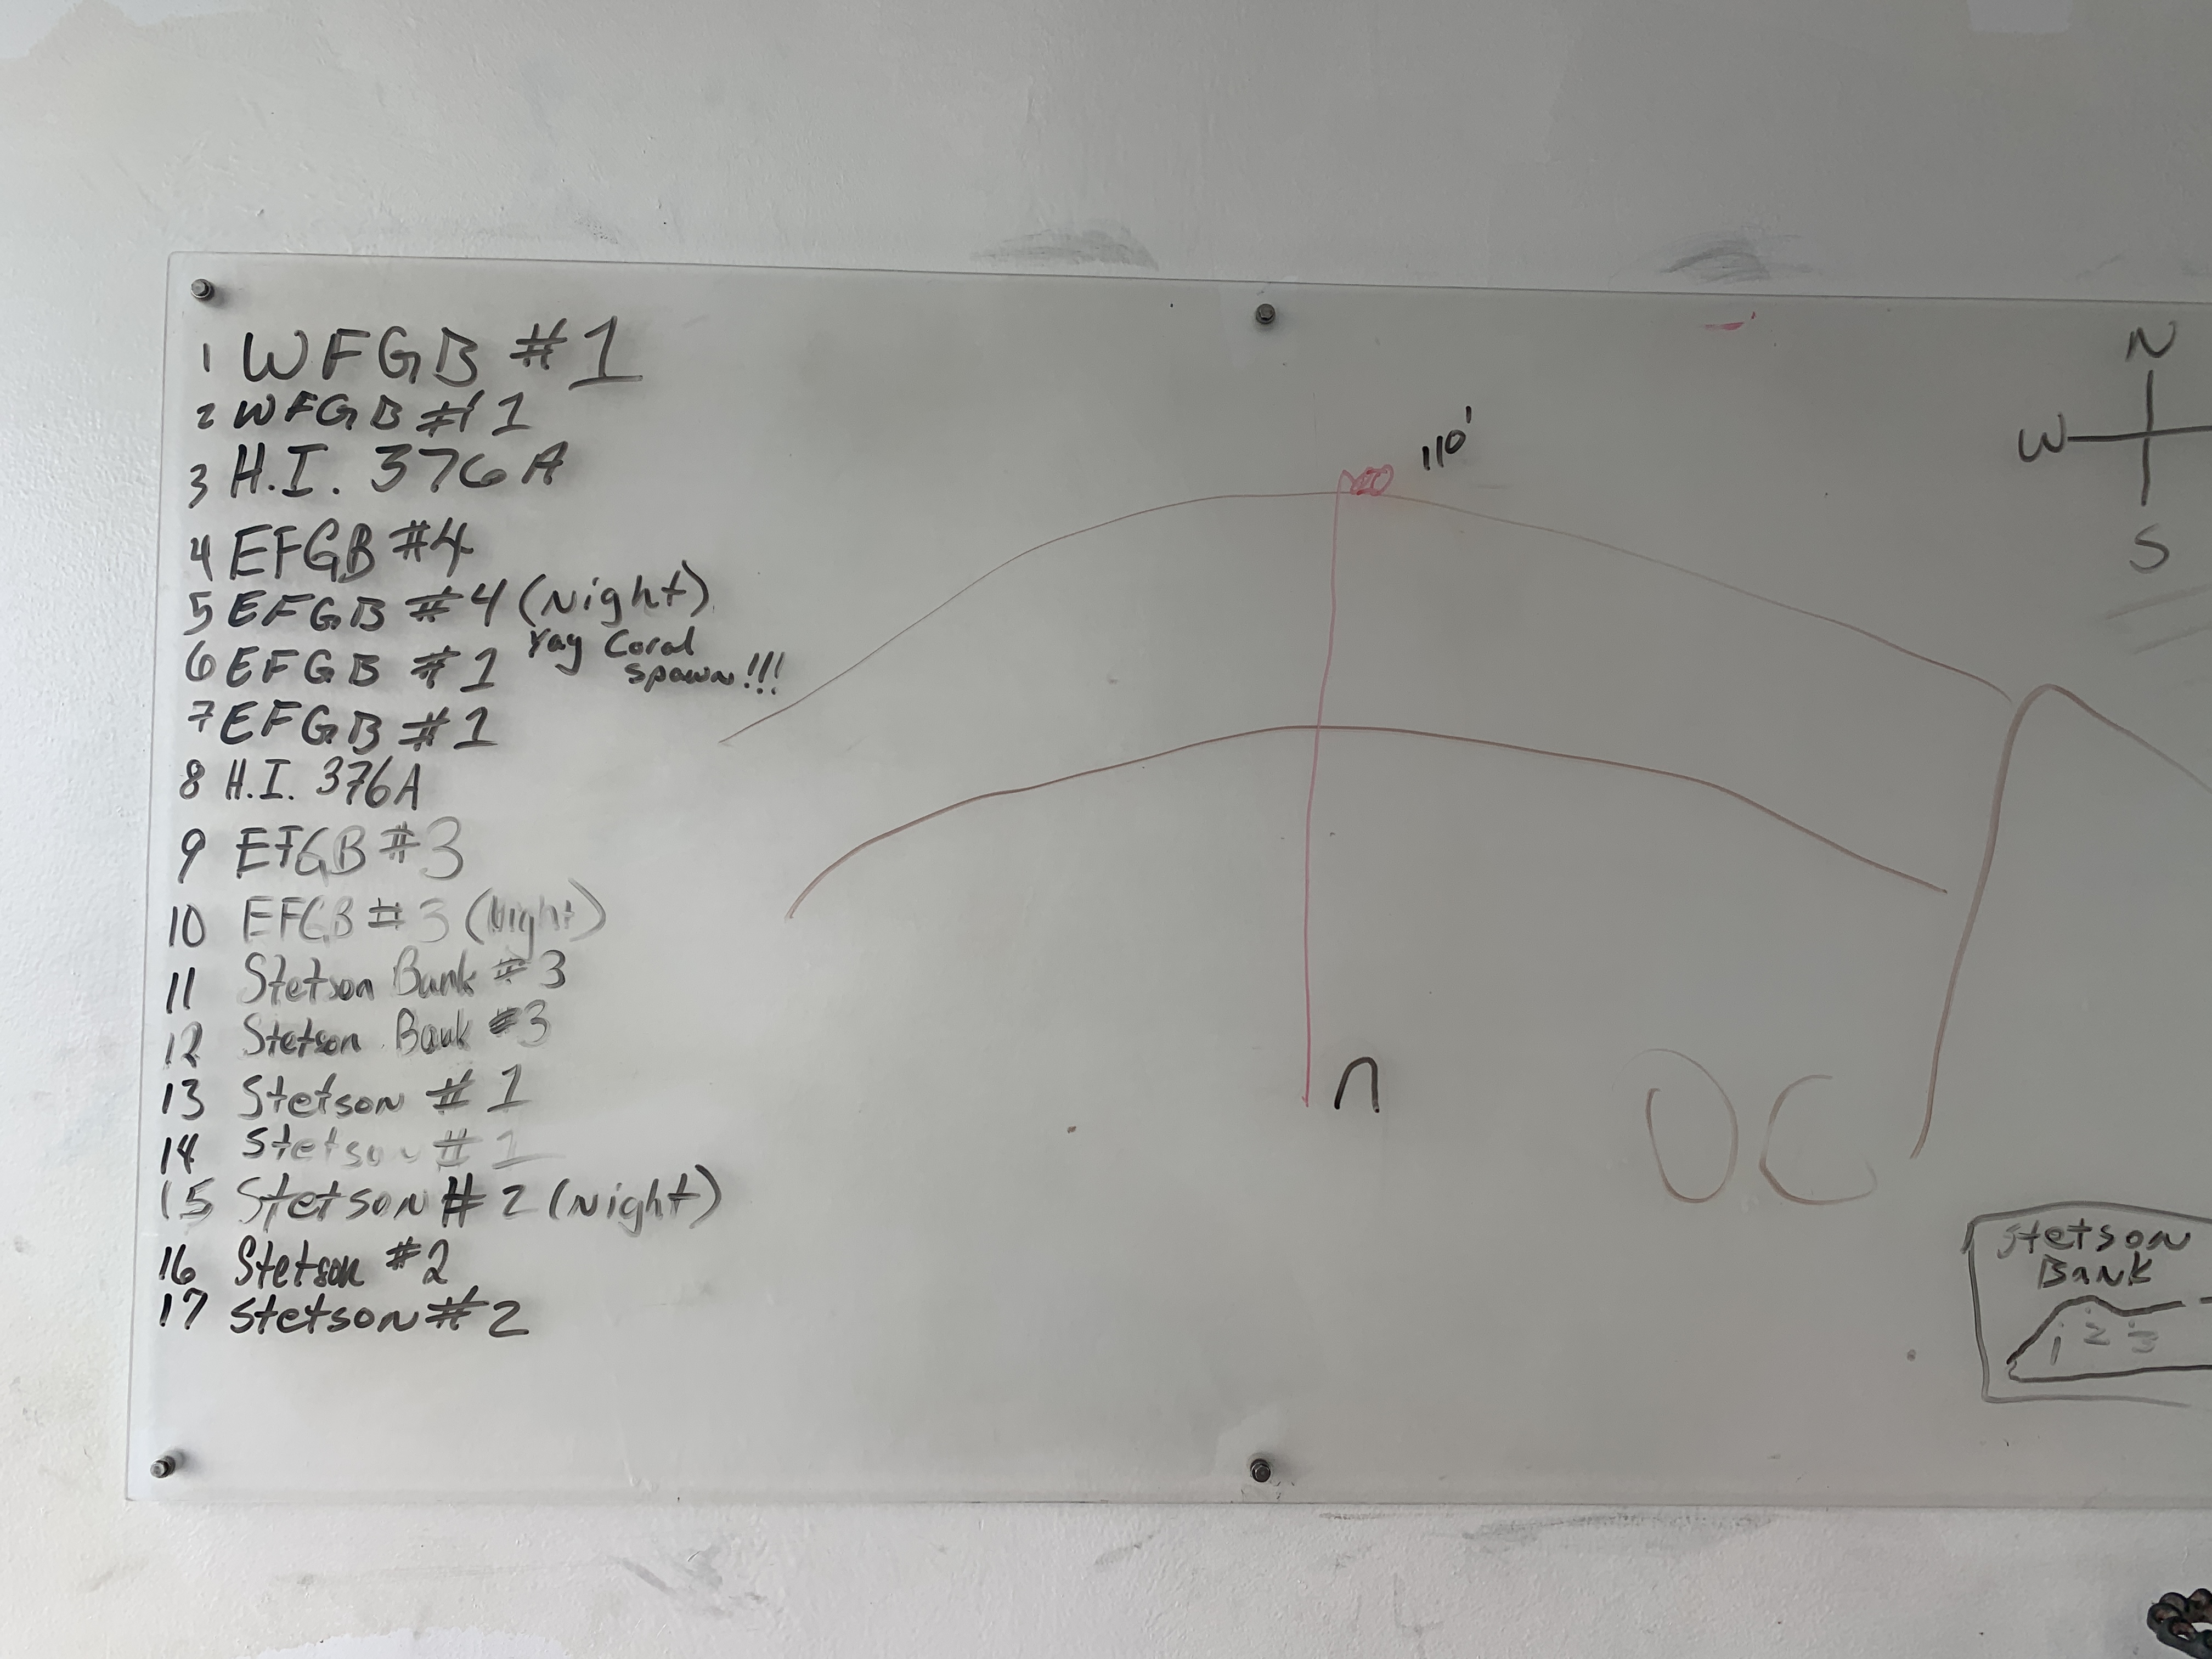 1 WFGB #1
2 WFGB #1
3 H.I. 376A
4 EFGB #4
5 EFGB #4 (Night)
Yay Coral
spawn!!!
6 EFGB #1
7 EFGB #1
8 H.I. 376A
9 EFGB #3
10 EFGB #3 (Night)
11 Stetson Bank #3
12 Stetson Bank #3
13 Stetson #1
14 Stetson #1
15 Stetson #2 (Night)
16 Stetson #2
17 Stetson #2
110'
N
W
S
OC
Stetson
Bank
1 2 3